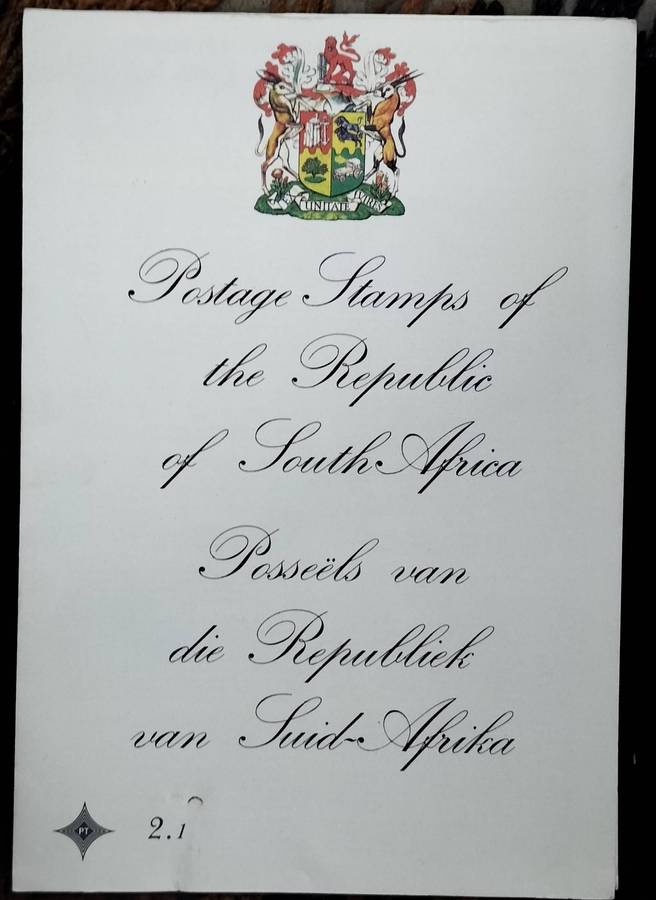 UNITATE VIRES
Postage Stamps of
the Republic
of South Africa
Posseëls van
die Republiek
van Suid-Afrika
PT
2.1